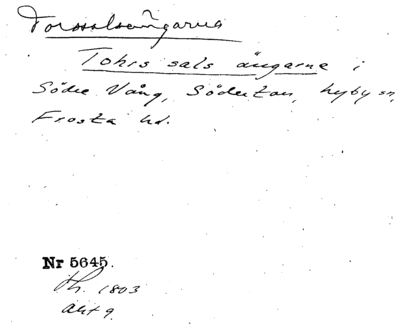 Torssalsängarne
Tohrs sals ängarne i
Södre Vång, Södertou, Hyby sn,
Frosta hd.
Nr 5645.
Sk. 1803
Akt 9